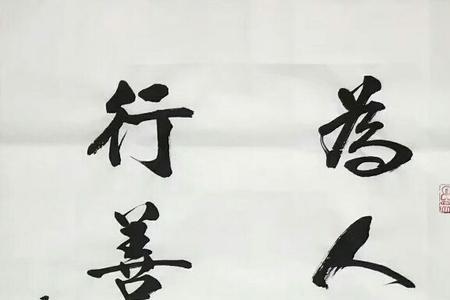 為人
行善